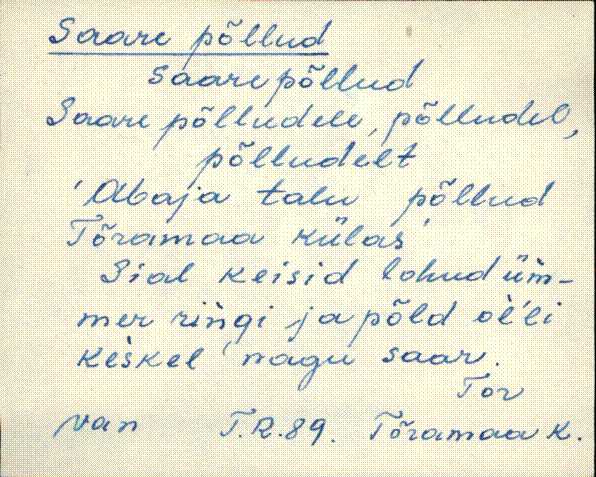 Saare põllud
saarepõllud
Saare põlludele, põlludel,
põlludelt
'Abaja talu põllud
Tõramaa külas
Sial keisid lohud üm-
mer ringi ja põld òl̀li
kèskel nagu saar.
Tor
van T.R.89. Tõramaa k.